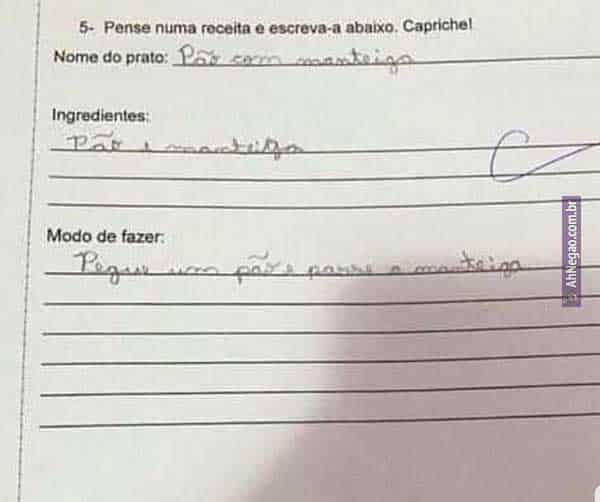 5- Pense numa receita e escreva-a abaixo. Capriche!
Nome do prato: Pão com manteiga
Ingredientes:
Pão e manteiga
Modo de fazer:
Pegue um pão e passe a manteiga
© AhNegao.com.br